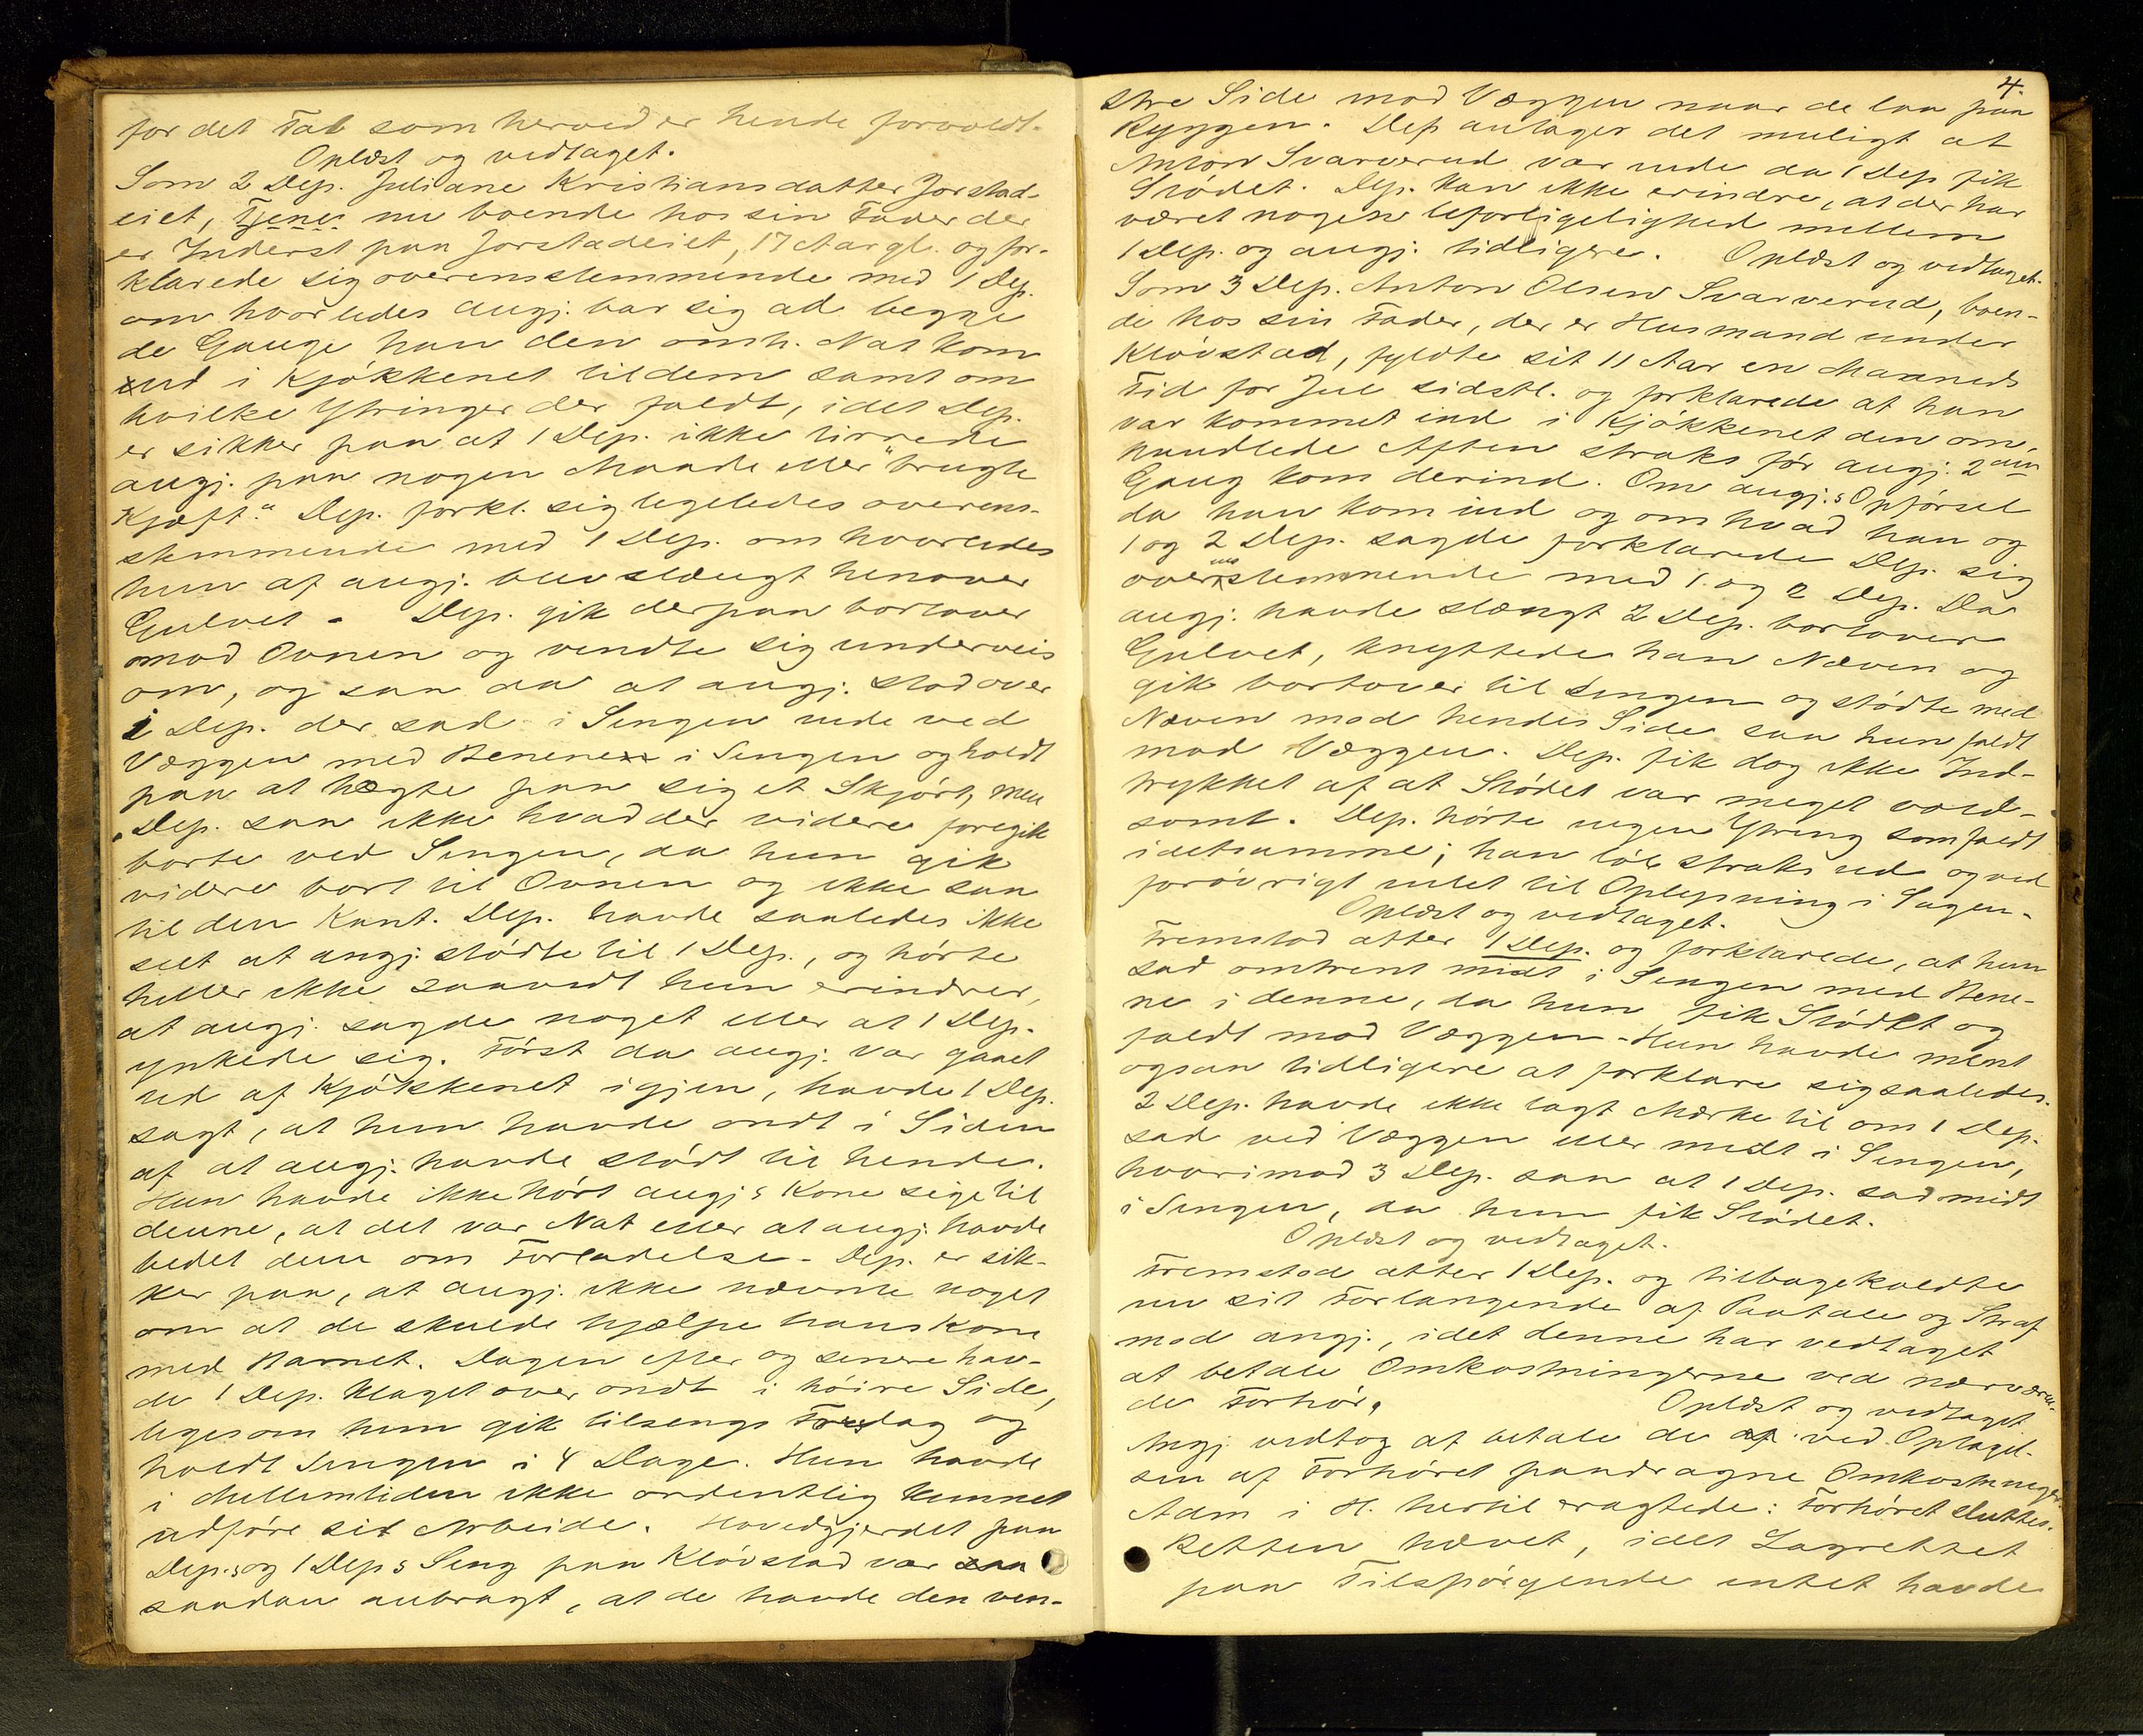 for det Tab som herved er hende forvoldt.
Oplæst og vedtaget.
Som 2 Dep. Juliane Kristiansdatter Jorstad-
eiet, Tjener nu boende hos sin Fader der
er Inderst paa Jorstadeiet, 17 Aar gl. og for-
klarede sig overensstemmende med 1 Dep.
om hvorledes angj. bar sig ad begge
de Gange han den omh. Nat kom
ind i Kjøkkenet til dem samt om
hvilke Ytringer der faldt, idet Dep.
er sikker paa at 1 Dep. ikke tirrede
angj. paa nogen Maade eller "brugte
Kjæft." Dep. forkl. sig ligeledes overens-
stemmende med 1 Dep. om hvorledes
hun af angj. blev slængt henover
Gulvet - Dep. gik derpaa bortover
mod Ovnen og vendte sig underveis
om, og saa da at angj. stod over
1 Dep. der sad i Sengen inde ved
Væggen med Benene i Sengen og holdt
paa at hægte paa sig et Skjørt, men
Dep. saa ikke hvad der videre foregik
borte ved Sengen, da hun gik
videre bort til Ovnen og ikke saa
til den Kant. Dep. havde saaledes ikke
seet at angj. stødte til 1 Dep., og hørte
heller ikke saavidt hun erindrer,
at angj. sagde noget eller at 1 Dep.
ynkede sig. Først da angj. var gaaet
ud af Kjøkkenet igjen, havde 1 Dep.
sagt, at hun havde ondt i Siden
af at angj. havde stødt til hende.
Hun havde ikke hørt angj.s Kone sige til
denne, at det var Nat eller at angj. havde
bedet dem om Forladelse - Dep. er sik-
ker paa, at angj. ikke nævnte noget
om at de skulde hjælpe hans Kone
med Barnet. Dagen efter og senere hav-
de 1 Dep. klaget over ondt i høire Side,
ligesom hun gik tilsengs Fredag og
holdt Sengen i 4 Dage. Hun havde
i Mellemtiden ikke ordentlig kunnet
udføre sit Arbeide. Hovedgjerdet paa
Dep.s og 1 Deps Seng paa Kløvstad var
saadan anbragt, at de havde den ven-
4.
stre Side mod Væggen naar de laa paa
Ryggen. Dep antager det muligt at
Anton Svarverud var inde da 1 Dep fik
Stødet. Dep. kan ikke erindre, at der har
været nogen Uforligelighed mellem
1 Dep. og angj. tidligere. Oplæst og vedtaget.
Som 3 Dep. Anton Olsen Svarverud, boen-
de hos sin Fader, der er Husmand under
Kløvstad, fyldte sit 11 Aar en Maaneds
Tid før Jul sidstl. og forklarede at han
var kommet ind i Kjøkkenet den om-
handlede Aften straks før angj. 2den
Gang kom derind. Om angj.s Opførsel
da han kom ind og om hvad han og
1 og 2 Dep. sagde forklarede Dep. sig
overensstemmende med 1 og 2 Dep. Da
angj. havde slængt 2 Dep. bortover
Gulvet, knyttede han Næven og
gik bortover til Sengen og stødte med
Næven mod hendes Side saa hun faldt
mod Væggen. Dep. fik dog ikke Ind-
trykket af at Stødet var meget vold-
somt. Dep. hørte ingen Ytring som faldt
idetsamme; han løb straks ud og ved
forøvrigt intet til Oplysning i Sagen.
Oplæst og vedtaget.
Fremstod atter 1 Dep. og forklarede, at hun
sad omtrent midt i Sengen med Bene-
ne i denne, da hun fik Stødet og
faldt mod Væggen - Hun havde ment
ogsaa tidligere at forklare sig saaledes.
2 Dep. havde ikke lagt Mærke til om 1 Dep.
sad ved Væggen eller midt i Sengen,
hvorimod 3 Dep. saa at 1 Dep. sad midt
i Sengen, da hun fik Stødet.
Oplæst og vedtaget.
Fremstod atter 1 Dep. og tilbagekaldte
nu sit Forlangende af Paatale og Straf
mod angj., idet denne har vedtaget
at betale Omkostningerne ved nærværen-
de Forhør.
Oplæst og vedtaget
Angj. vedtog at betale de ved Optagel-
sen af Forhøret paadragne Omkostninger.
Adm i H. hertil eragtede: Forhøret sluttes.
Retten hævet, idet Lagrettet
paa Tilspørgende intet havde